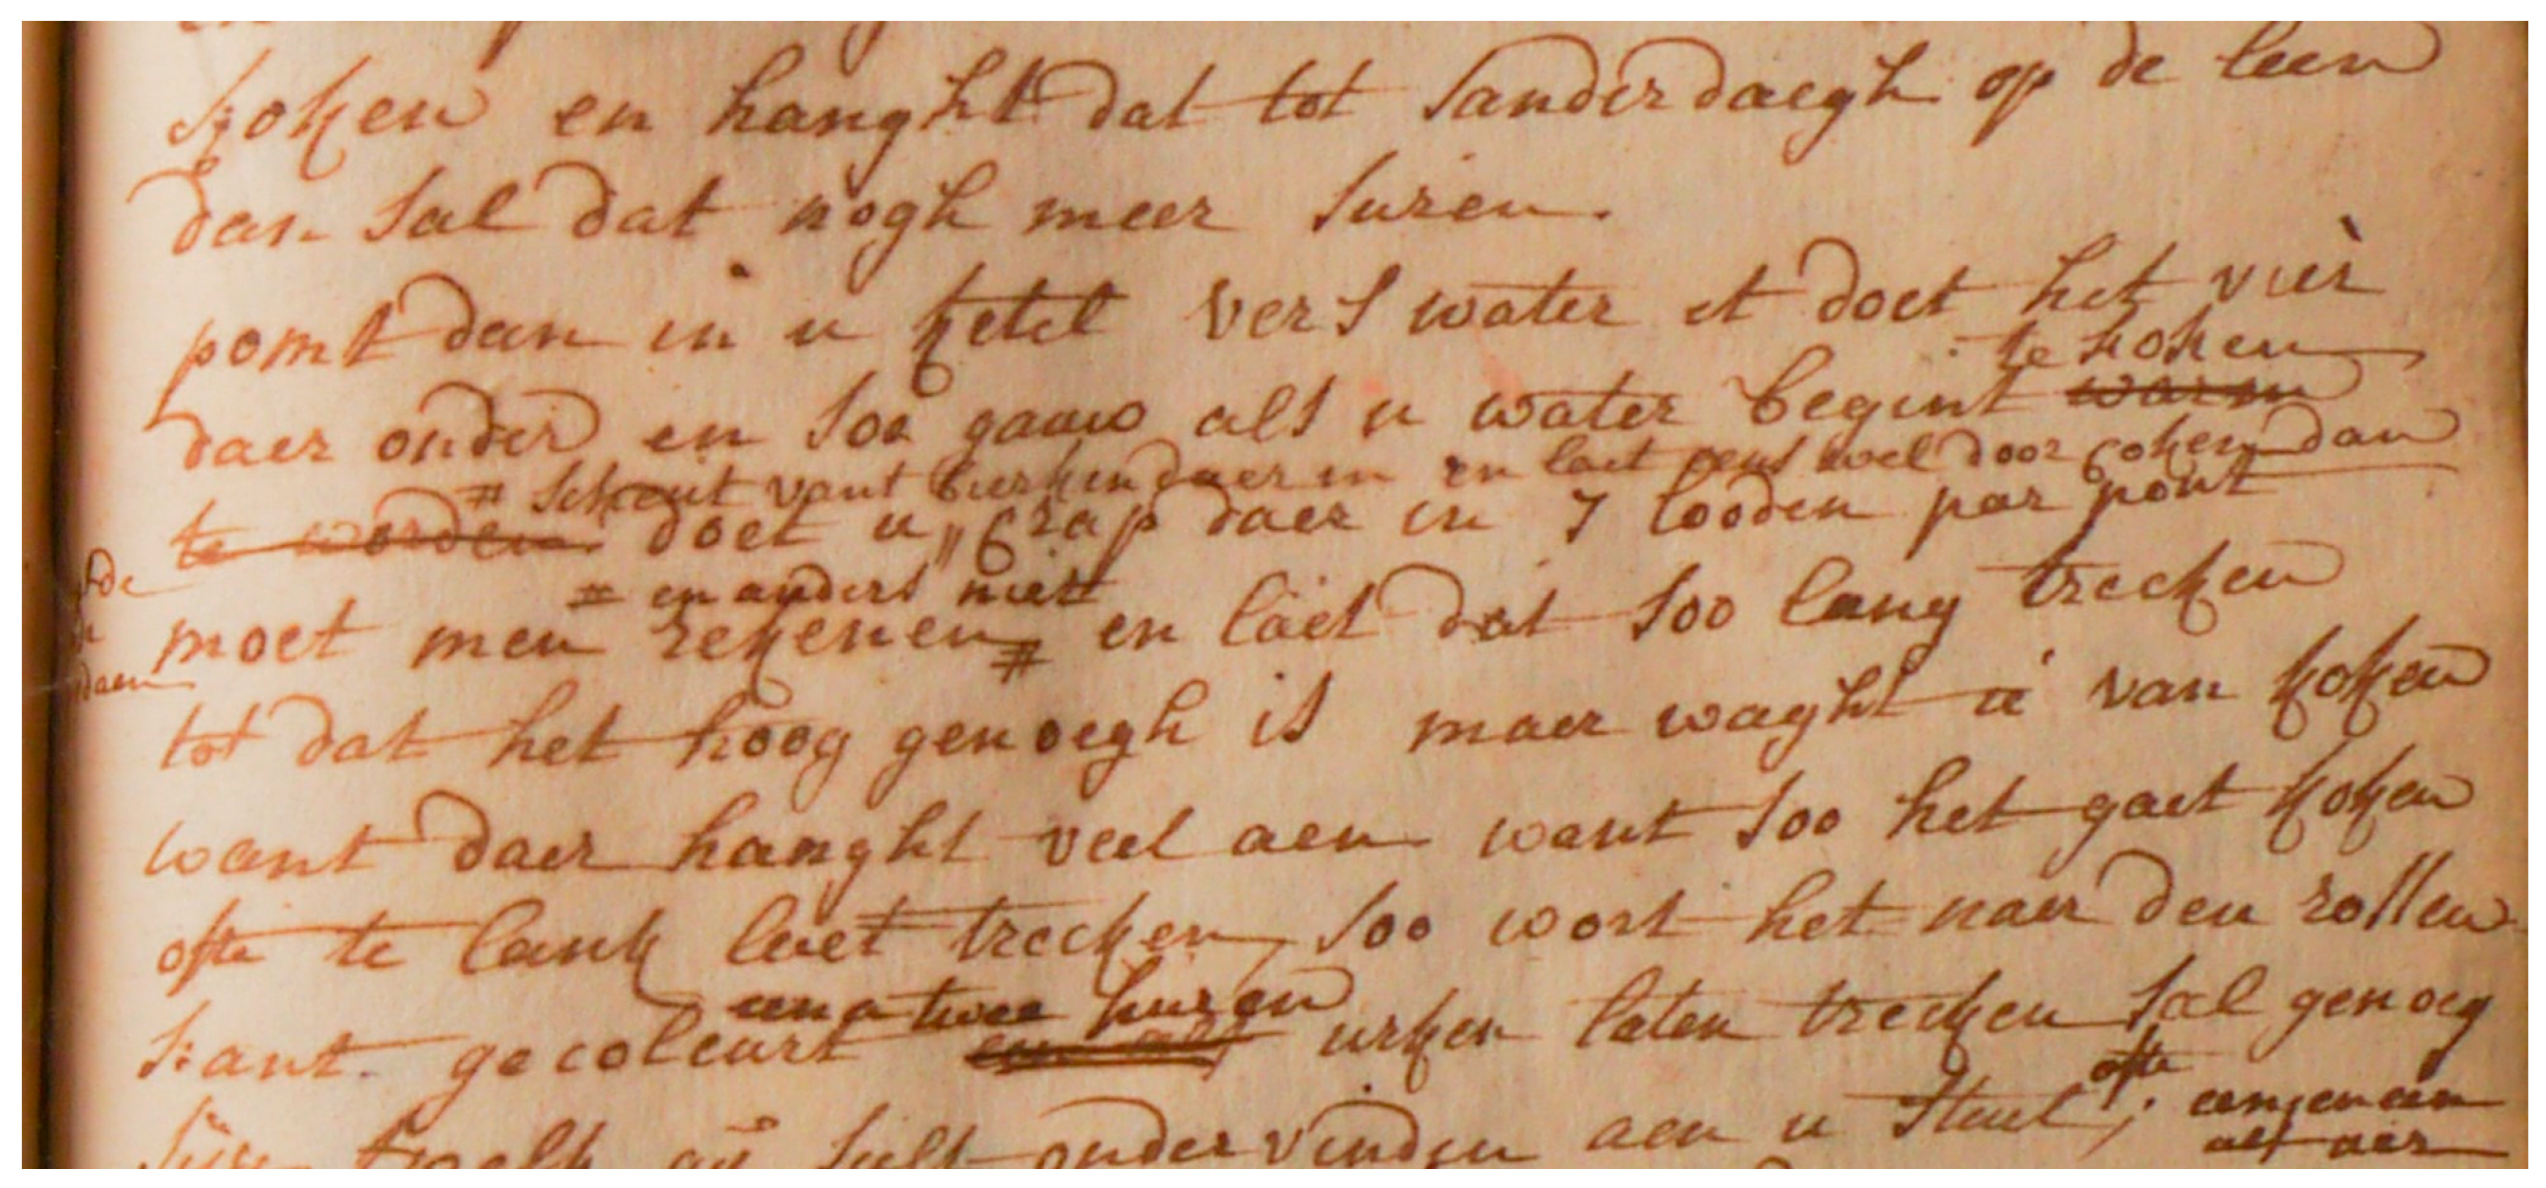 koken en hanght dat tot sanderdaegh op de leen
dan sal dat nogh meer suren.
pomt dan in u ketel vers water et doet het vier
te koken
daer onder en soo gauw als u water begint warm
# schuit vant bierken daer in en laet eens wel door coken dan
te worden doet u crap daer in 7 looden par pont
# en anders niet
moet men rekenen # en laet dat soo lang trecken
tot dat het hoog genoegh is maer waght u van koken
want daer hanght veel aen want soo het gaet koken
ofte te lank laet trecken, soo wort het naer den rossen
een a twee huren
kant gecoleurt urken laten trecken sal genoeg
ofte
sult ondervinden aen u stuel